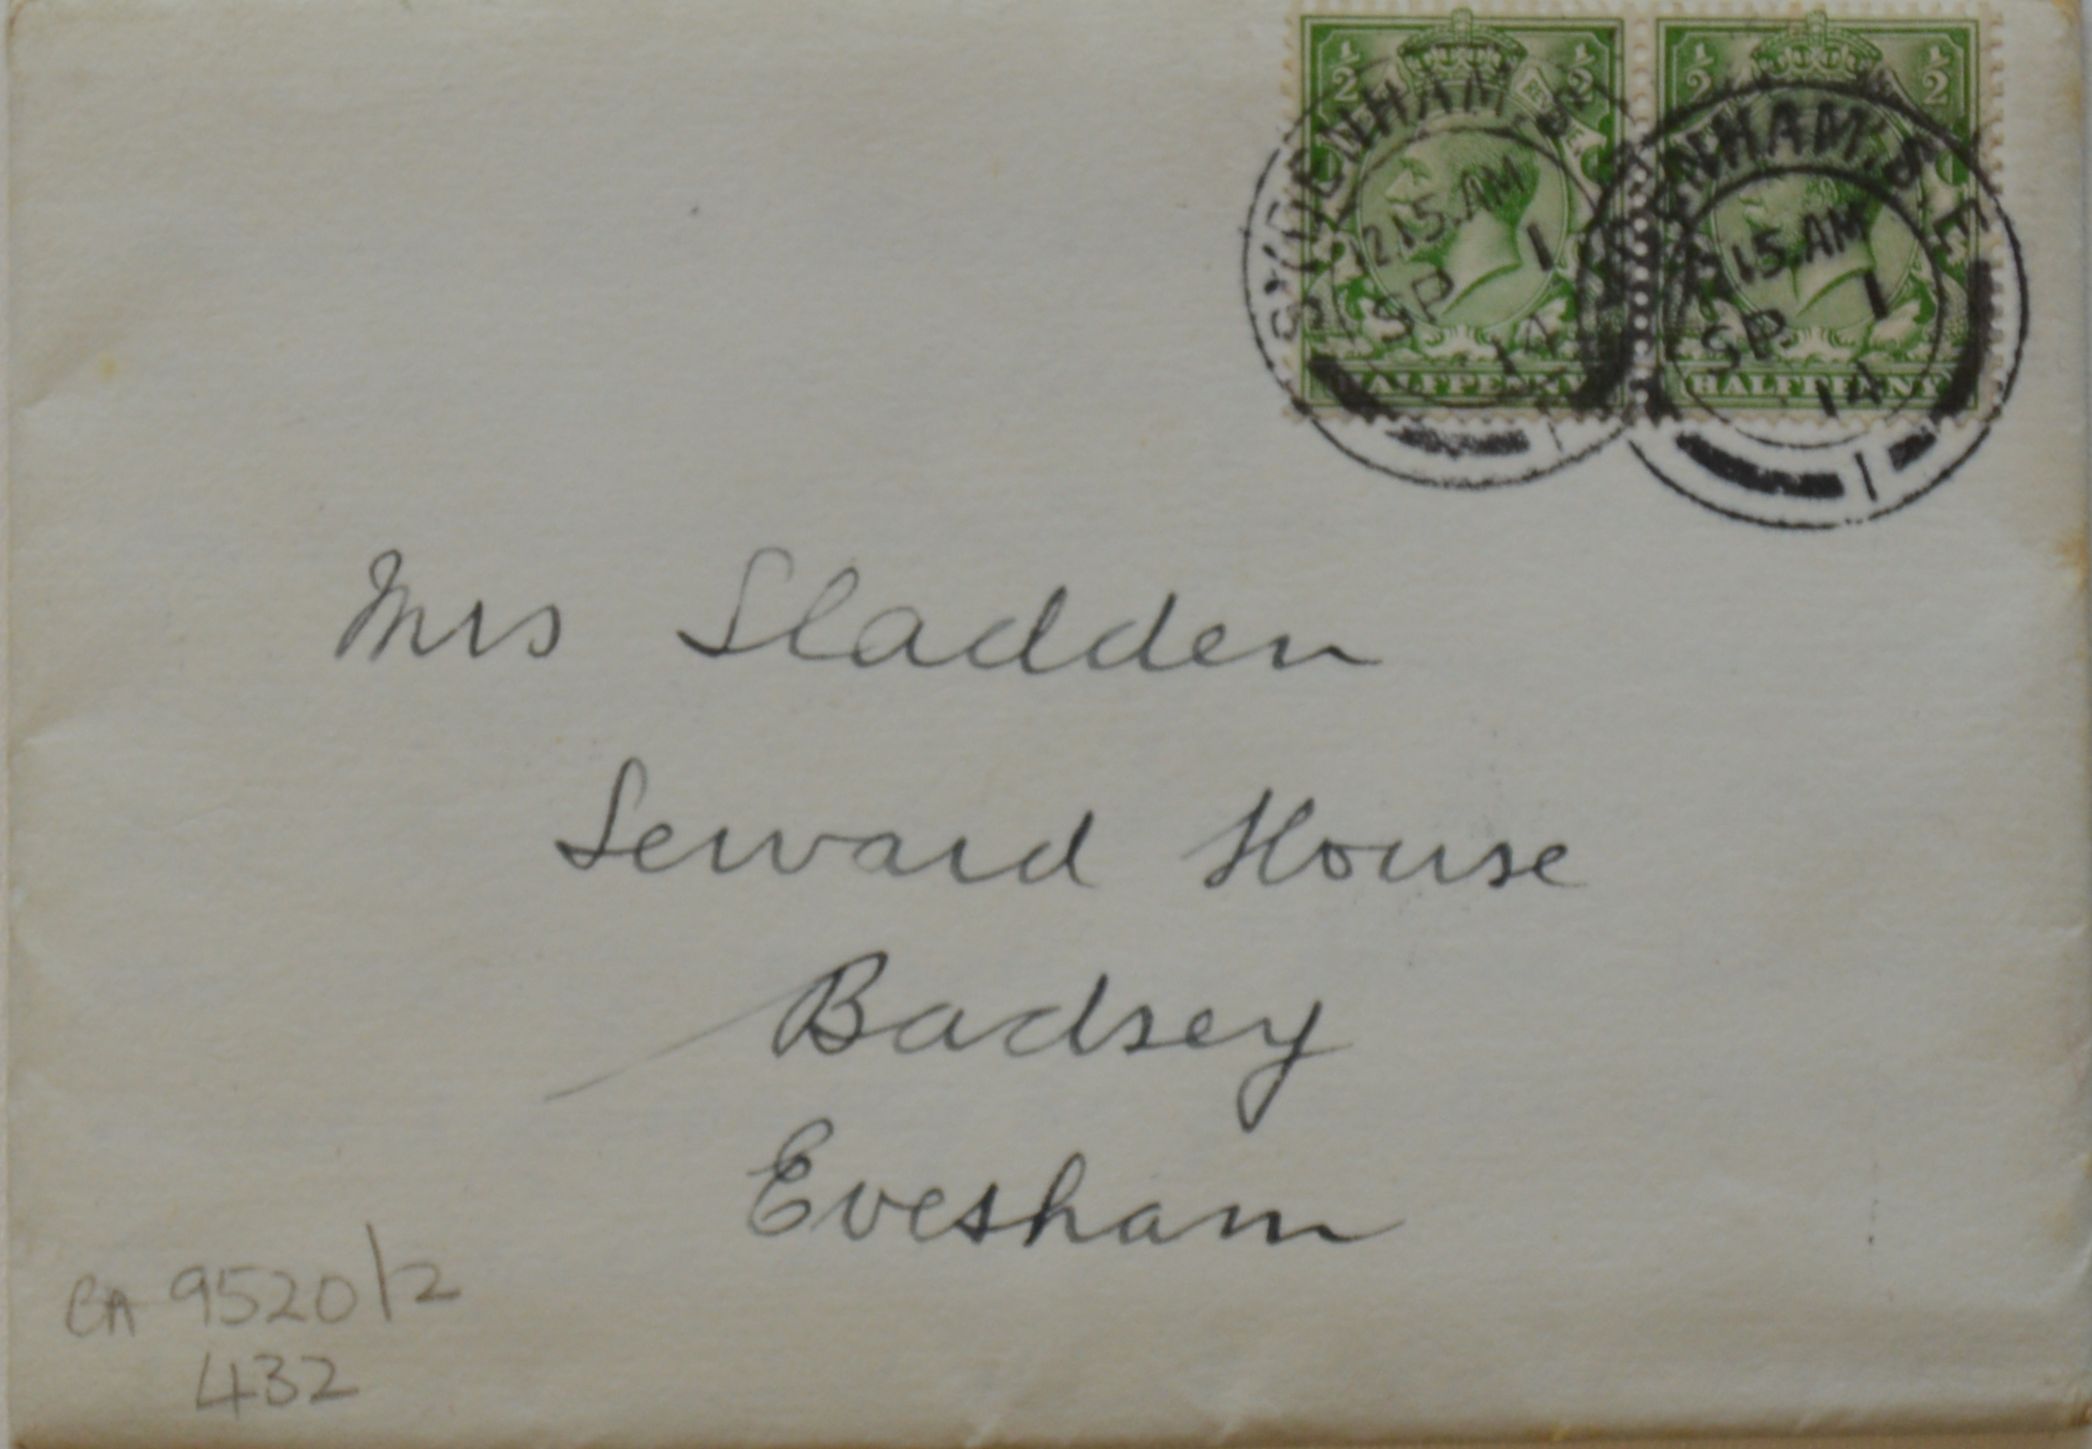 ½ ½ ½ ½
SYDENHAM. S.E
12.15.AM
SP 1
14
HALFPENNY
SYDENHAM. S.E
12.15.AM
SP 1
14
HALFPENNY
1
Mrs Sladden
Seward House
Badsey
Evesham
CA 9520/2
432